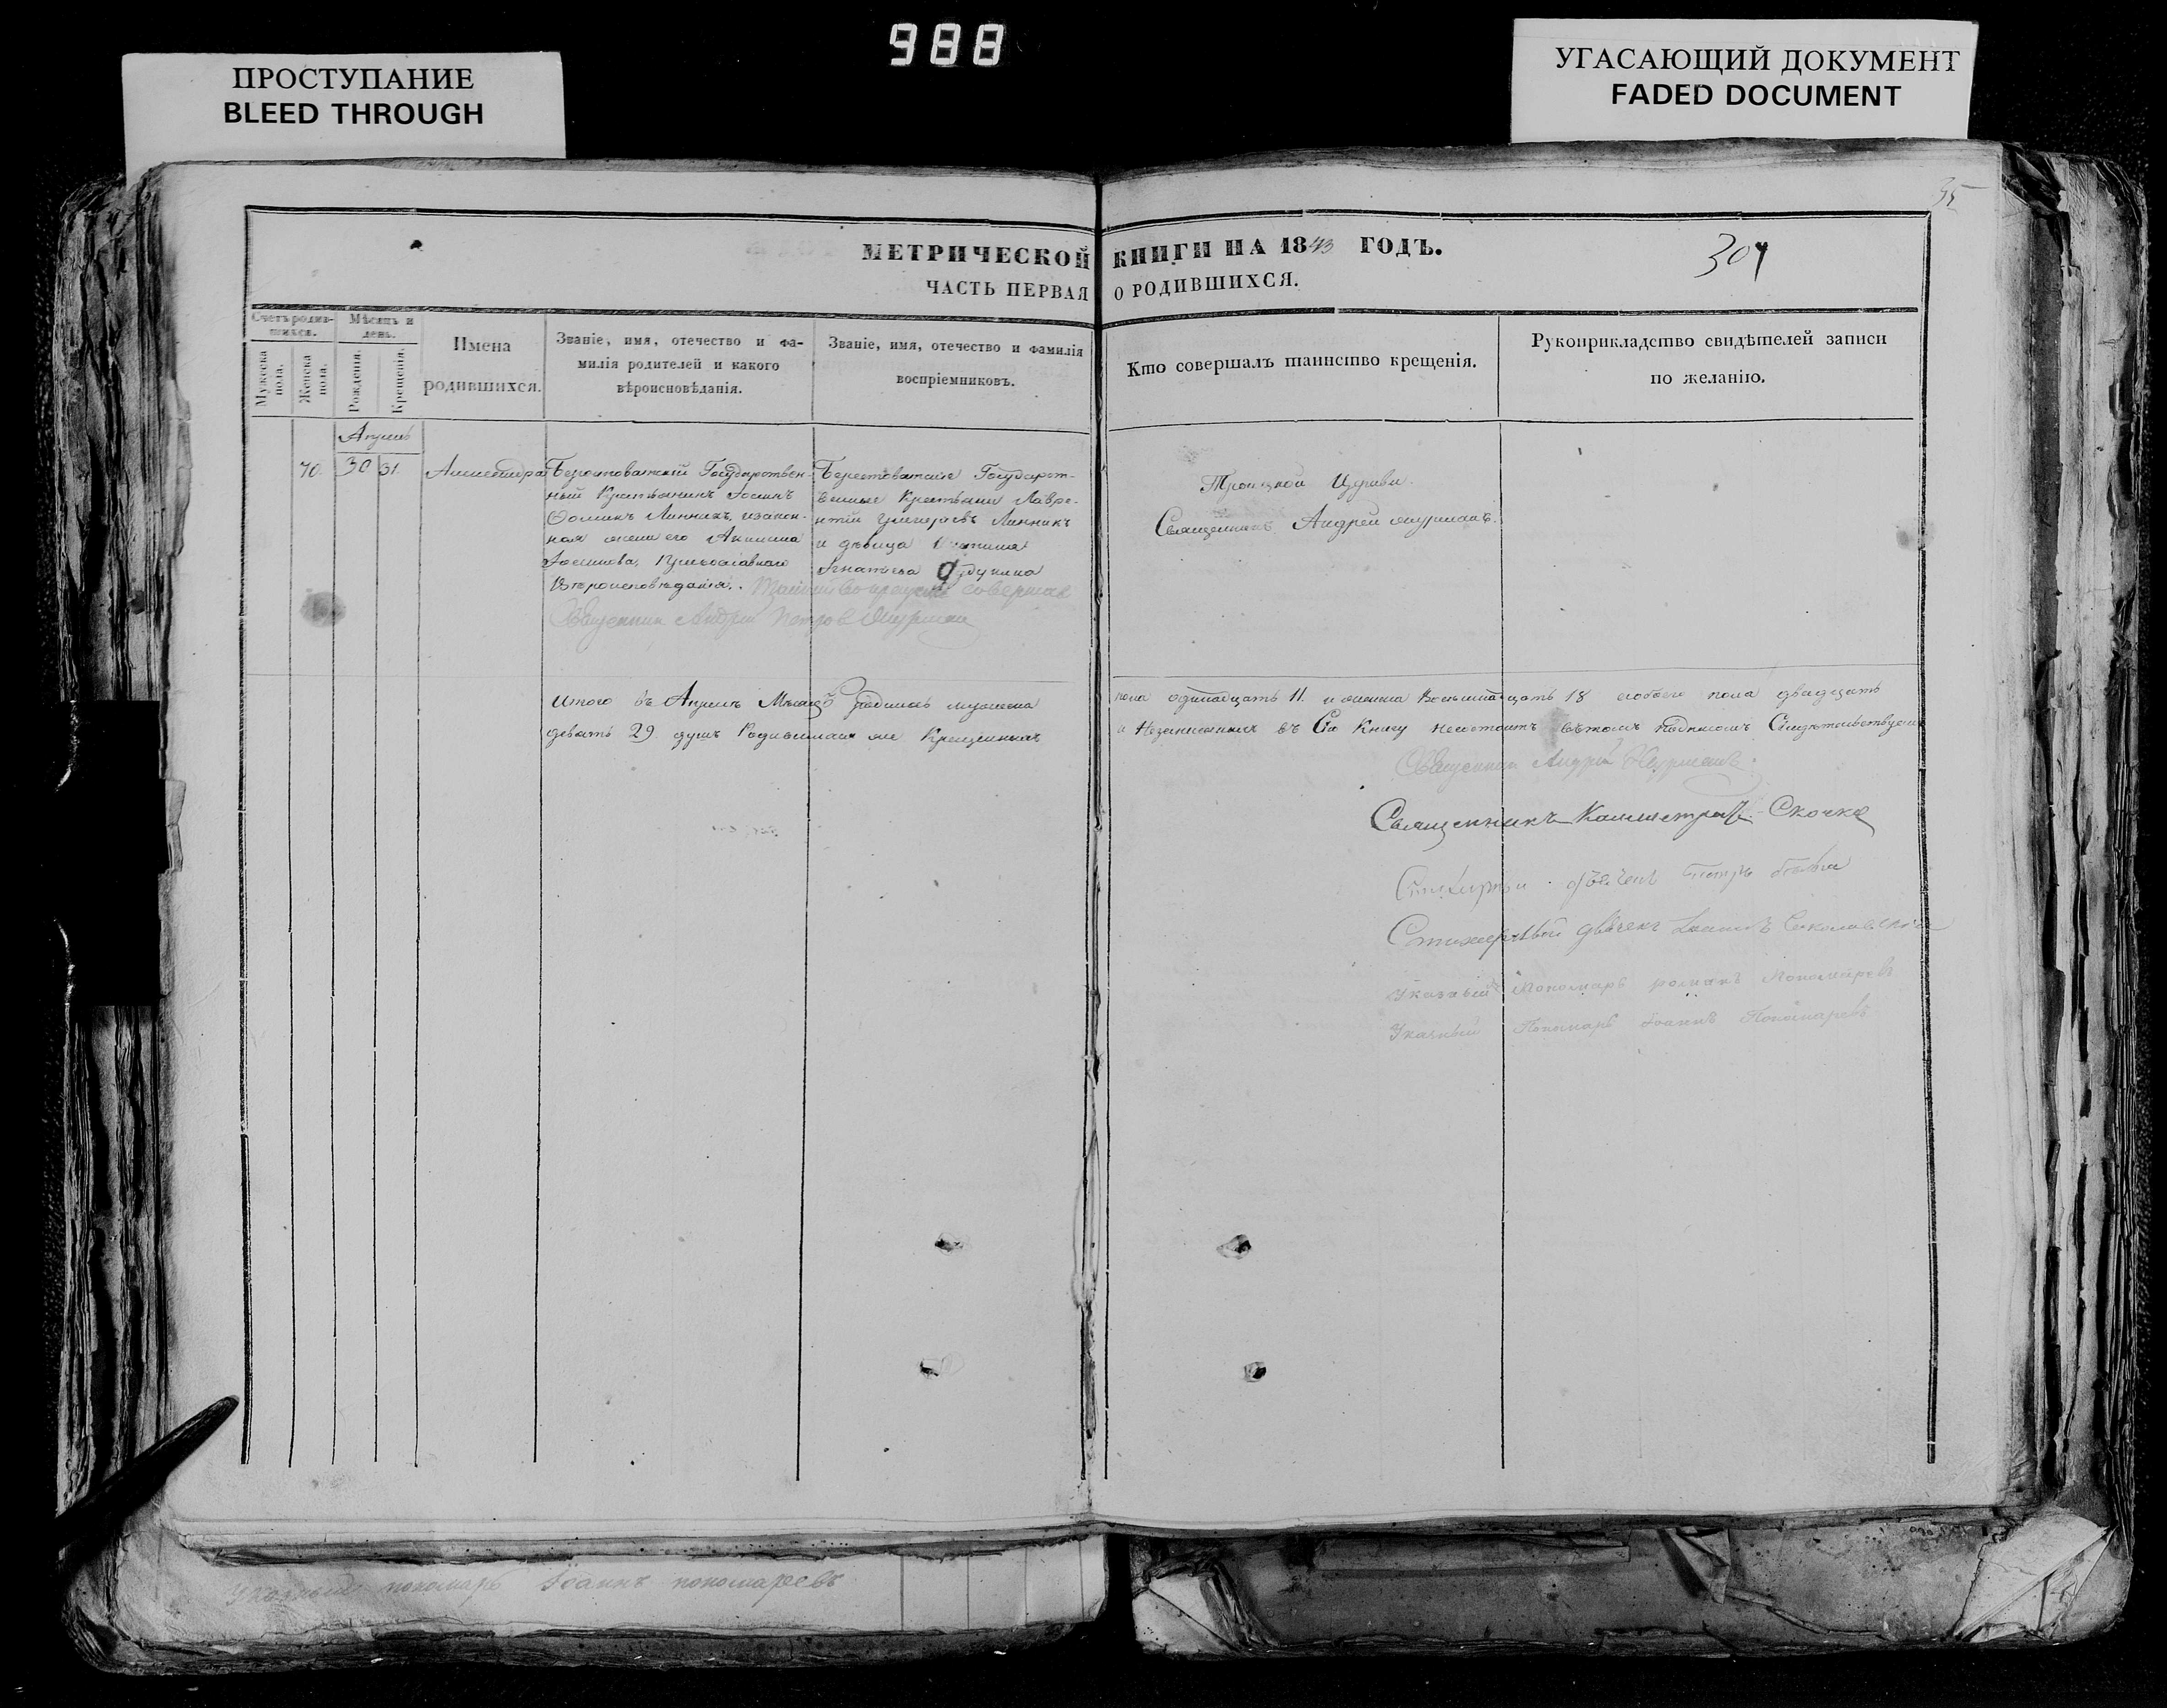 988
ПРОСТУПАНИЕ
BLEED THROUGH
УГАСАЮЩИЙ ДОКУМЕНТ
FADED DOCUMENT
35
МЕТРИЧЕСКОЙ КНИГИ НА 1843 ГОДЪ.
304
ЧАСТЬ ПЕРВАЯ О РОДИВШИХСЯ.
Счетъ родив-
шихся.
Мужеска пола.
Женска пола.
Мѣсяцъ и
день.
Рожденія.
Крещенія.
Имена
родившихся.
Званіе, имя, отечество и фа-
милія родителей и какого
вѣроисповѣданія.
Званіе, имя, отечество и фамилія
воспріемниковъ.
Кто совершалъ таинство крещенія.
Рукоприкладство свидѣтелей записи
по желанію.
Апрель
70. 30 31.
Государствен-
ный Крестьянинъ
Линникъ, и закон-
ная жена его Акилина
православнаго
Вѣроисповѣданія.
совершал
Священник Андрей Петров
Государст-
венные Крестьяне Лавре-
нтій Григорьевъ Линникъ
и дѣвица
Игнатьева
Троицкой Церкви
Священникъ Андрей
Итого въ Апрелѣ Мѣсяцѣ родилось мужеска
пола одинадцать 11. и женска Восьмнадцать 18 обоего пола двадцать
девять 29 душъ Родившихся же Крещенныхъ
и Незаписанныхъ въ Сію Книгу несостоитъ вътомъ подписомъ Свидѣтельствуемъ
Священник Андрей
Священникъ Калистратъ Скочко
дьячекъ Петръ
Стихарный дьячекъ Іоаннъ
Указный Пономарь романъ Пономаревъ
Указный Пономарь Іоаннъ Пономаревъ
Указный пономарь Іоаннъ пономаревъ